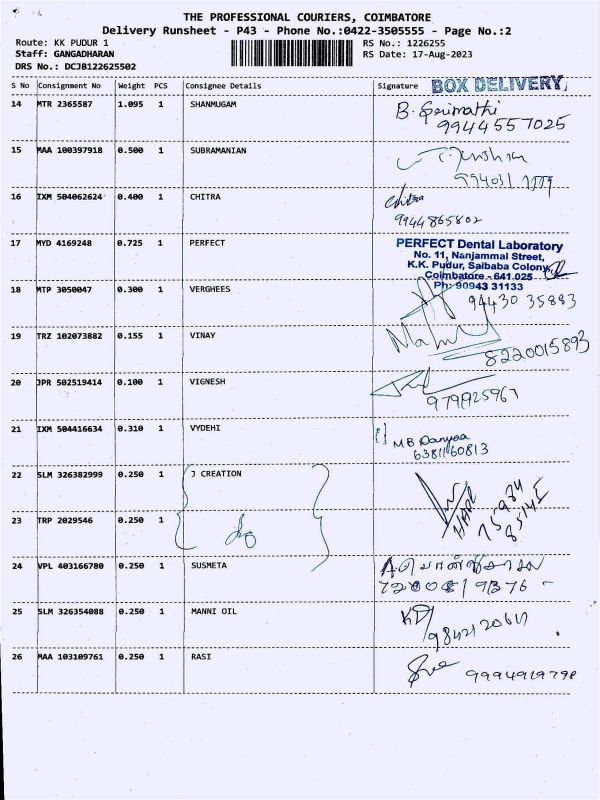 THE PROFESSIONAL COURIERS, COIMBATORE
Delivery Runsheet - P43 - Phone No.:0422-3505555 - Page No.:2
Route: KK PUDUR 1 RS No.: 1226255
Staff: GANGADHARAN RS Date: 17-Aug-2023
DRS No.: DCJB122625502
S No Consignment No Weight PCS Consignee Details Signature BOX DELIVERY
14 MTR 2365587 1.095 1 SHANMUGAM B. Gerimathi
9944557025
15 MAA 100397918 0.500 1 SUBRAMANIAN
16 IXM 504062624 0.400 1 CHITRA chitra
9944865802
17 MYD 4169248 0.725 1 PERFECT PERFECT Dental Laboratory
No. 11, Nanjammal Street,
K.K. Pudur, Saibaba Colony,
Coimbatore - 641 025
Ph: 90943 31133
18 MTP 3050047 0.300 1 VERGHEES 94430 35883
19 TRZ 102073882 0.155 1 VINAY
8220015893
20 JPR 502519414 0.100 1 VIGNESH
21 IXM 504416634 0.310 1 VYDEHI MB Danyaa
6381160813
22 SLM 326382999 0.250 1 J CREATION HARI
75984
85145
23 TRP 2029546 0.250 1
24 VPL 403166780 0.250 1 SUSMETA
25 SLM 326354088 0.250 1 MANNI OIL
26 MAA 103109761 0.250 1 RASI 9994919798